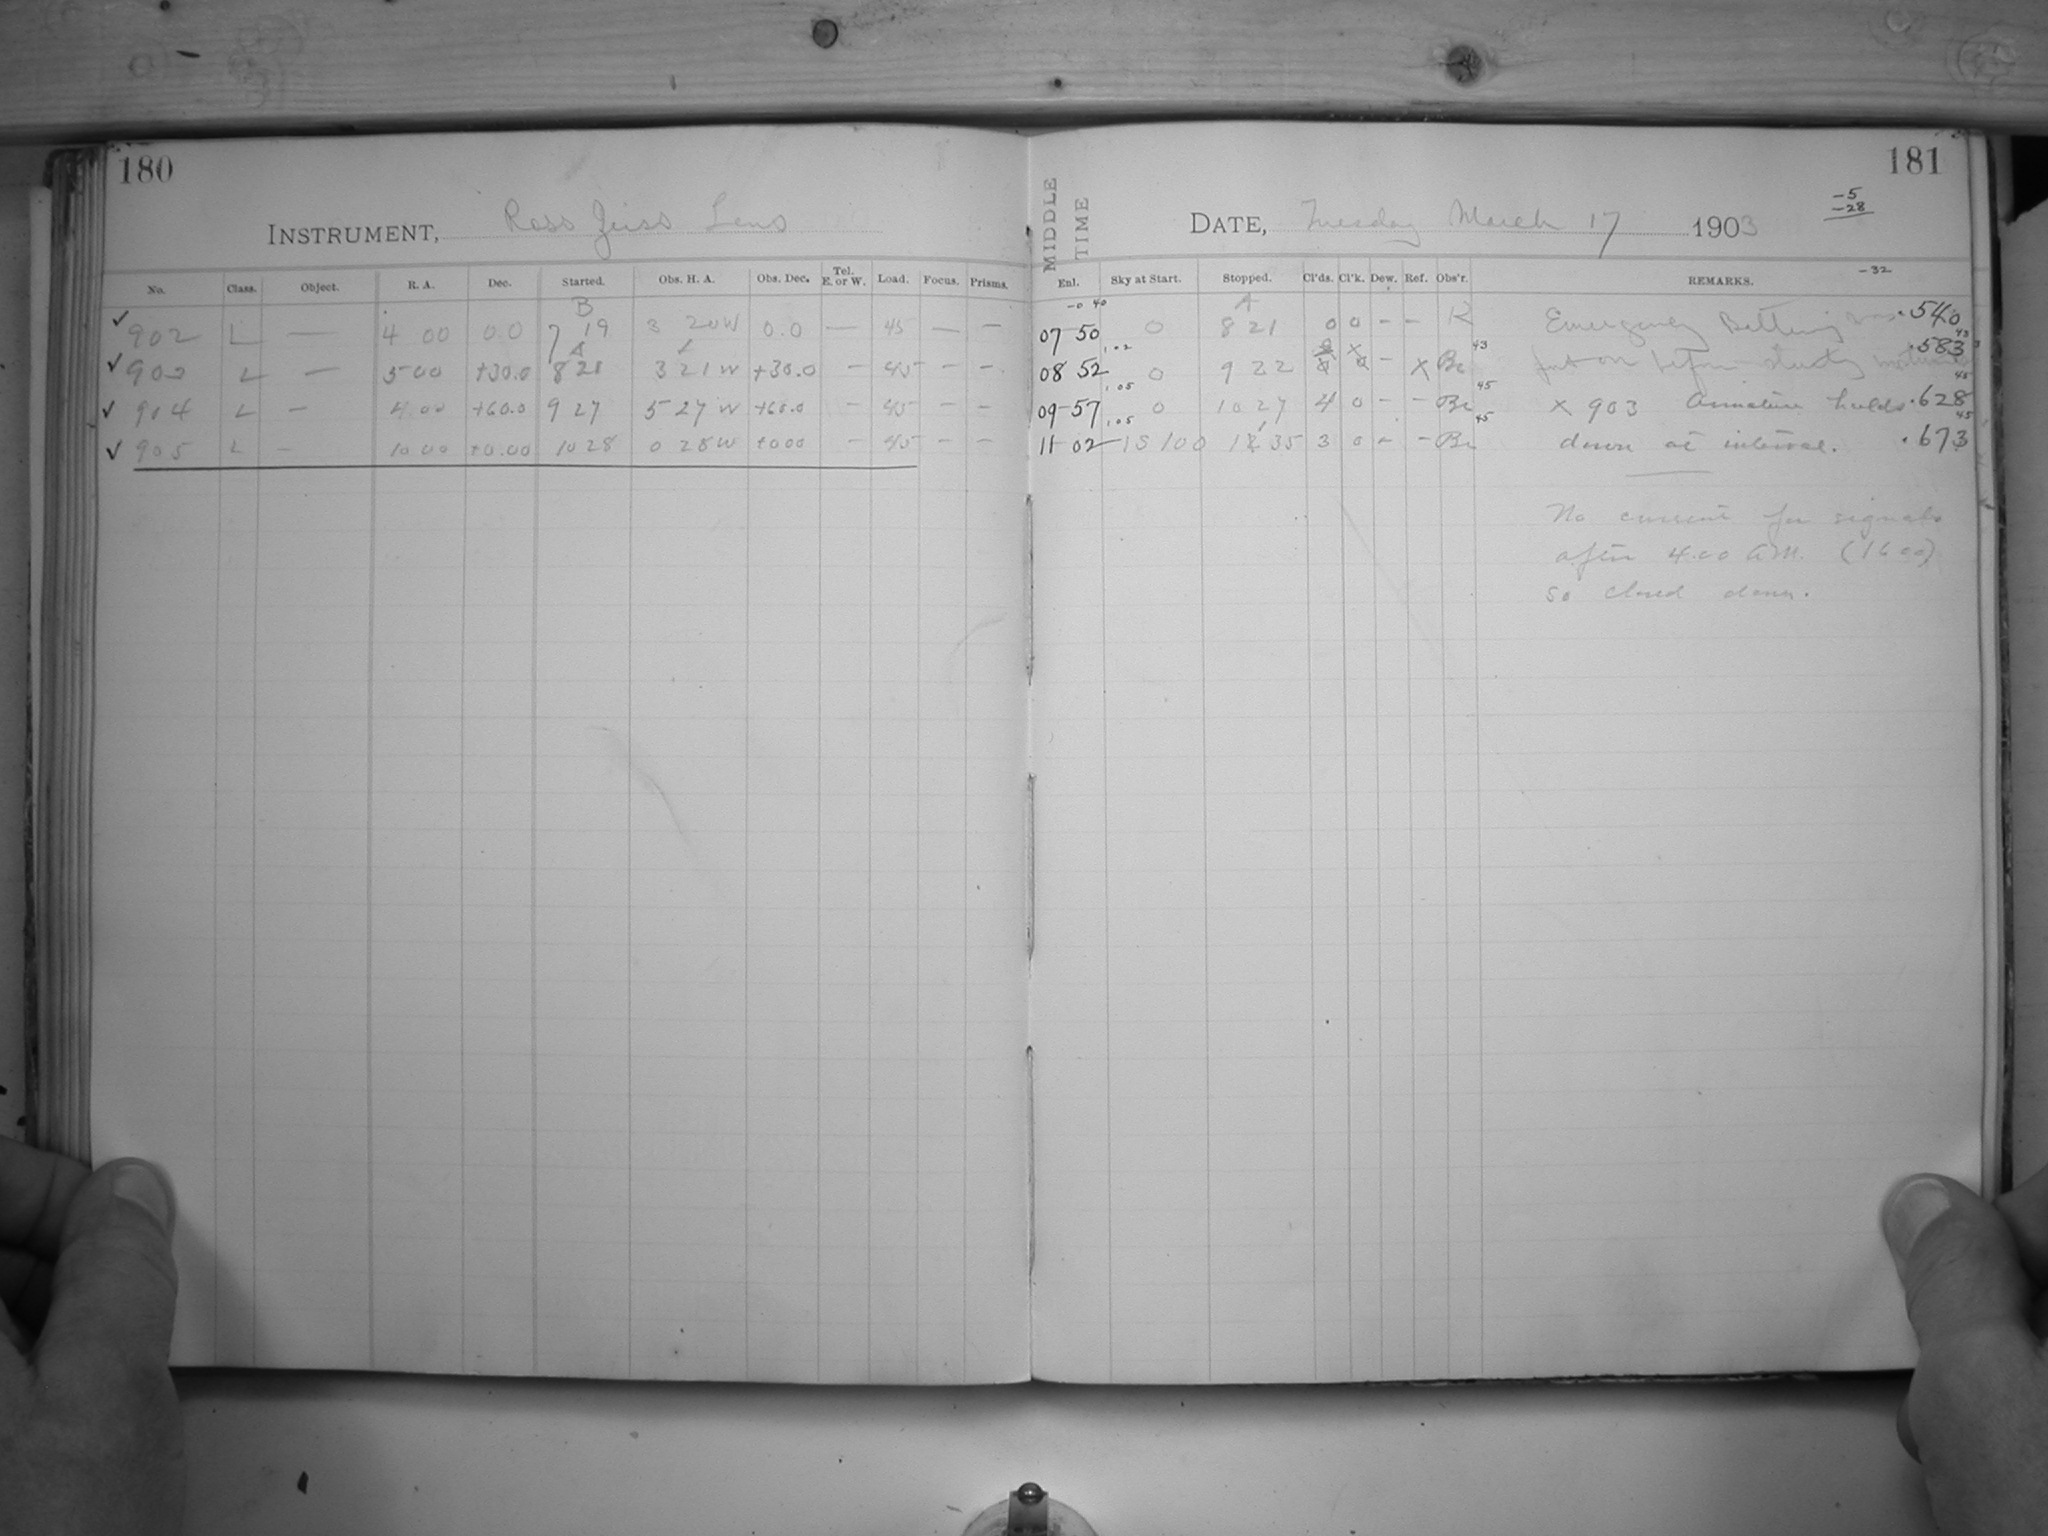 180
INSTRUMENT, Ross Zeiss Lens
No. Class. Object. R. A. Dec. Started. Obs. H. A. Obs. Dec. Tel. E. or W. Load. Focus. Prisms.
B
✓ 902 L — 4 00 0.0 7 19 3 20 W 0.0 — 45 — —
A
✓ 903 L — 5 00 +30.0 8 21 3 21 W +30.0 — 45 — —
✓ 904 L — 4 00 +60.0 9 27 5 27 W +60.0 — 45 — —
✓ 905 L — 10 00 +0.00 10 28 0 28 W +000 — 45 — —
181
MIDDLE TIME
DATE, Tuesday March 17 1903
-5
-28
-32
Enl. Sky at Start. Stopped. Cl'ds. Cl'k. Dew. Ref. Obs'r. REMARKS.
-0 40 A
07 50 0 8 21 0 0 - - R Emergency Battery was .540
1.02 43 43
08 52 0 9 22 - x Be put on before study .583
1.05 45 45
09 57 0 10 27 4 0 - - Be x 903 Armature holds .628
1.05 45 45
11 02 15 100 35 3 0 - - Be down at interval. .673
No current for signals
after 4.00 A.M. (16 00)
so closed down.